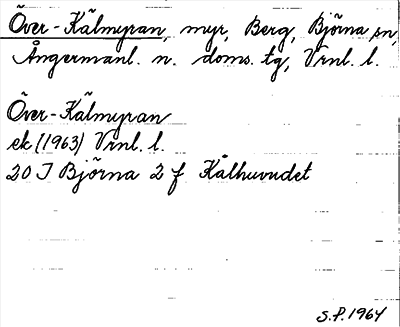 Över-Kälmyran, myr, Berg, Björna sn,
Ångermanl. n. doms. tg, Vrnl. l.
Över-Kälmyran
ek (1963) Vrnl. l.
20 I Björna 2 f Kälhuvudet
S.P. 1964